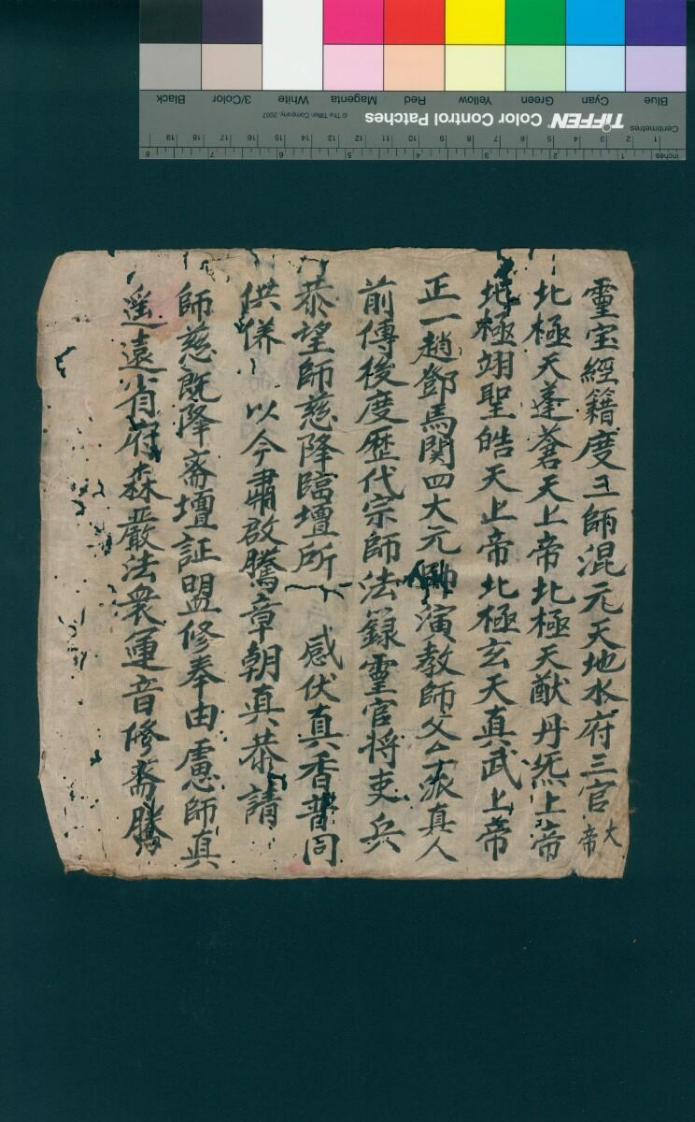 靈宝經籍度三師混元天地水府三官大帝
北極天蓬蒼天上帝北極天猷丹炁上帝
北極翊聖皓天上帝北極玄天真武上帝
正一趙鄧馬関四大元帥演教師父合派真人
前傳後度歷代宗師法籙靈官将吏兵
恭望師慈降臨壇所 感伏真香普同
供養 以今肅啟騰章朝真恭請
師慈既降斎壇証盟修奉由慮師真
遥遠省府森嚴法衆運音修斎騰
Blue
Cyan
Green
Yellow
Red
Magenta
White
3/Color
Black
TIFFEN Color Control Patches
© The Tiffen Company, 2007
Centimetres
1 2 3 4 5 6 7 8 9 10 11 12 13 14 15 16 17 18 19
Inches
1 2 3 4 5 6 7 8